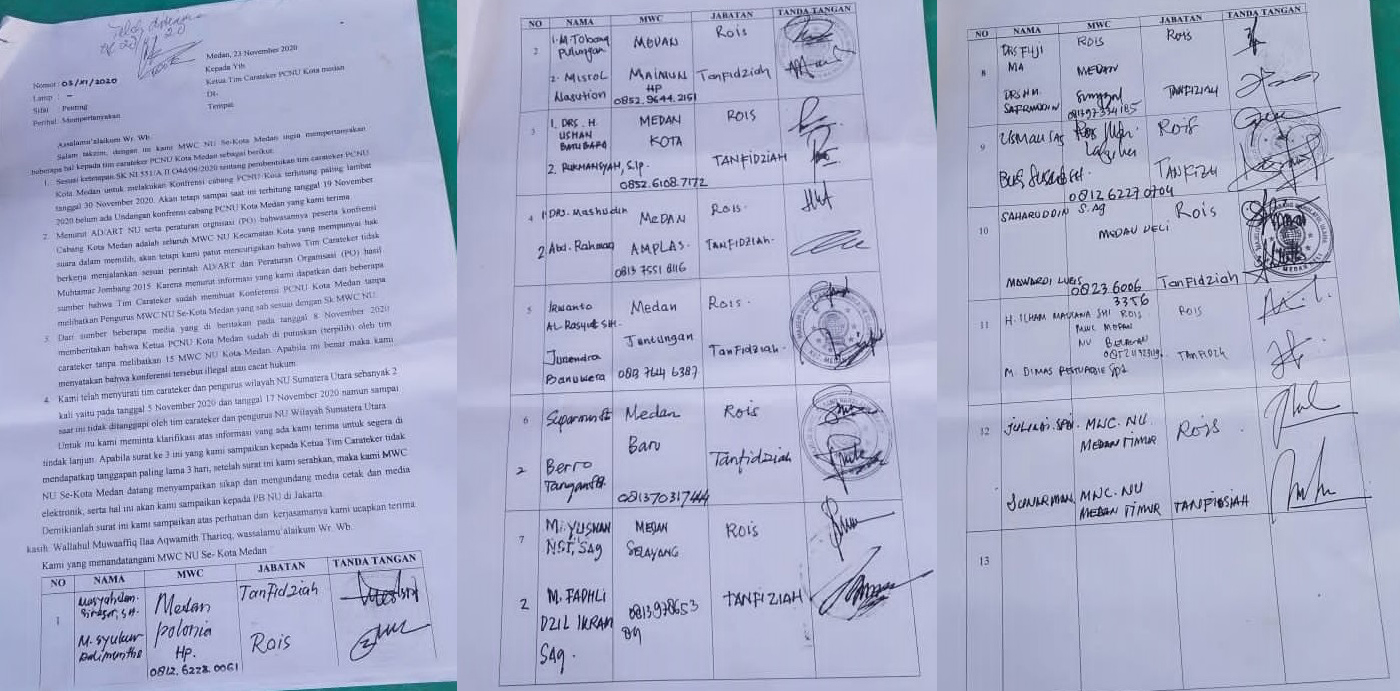 Telah diterima
Medan, 23 November 2020
Kepada Yth
Ketua Tim Carateker PCNU Kota medan
Di-
Tempat
Nomor : 03/XI/2020
Lamp : -
Sifat : Penting
Perihal : Mempertanyakan
Assalamu'alaikum Wr. Wb.
Salam takzim, dengan ini kami MWC NU Se-Kota Medan ingin mempertanyakan
beberapa hal kepada tim carateker PCNU Kota Medan sebagai berikut.
1. Sesuai ketetapan SK NI 551/A.II.04d/09/2020 tentang pembentukan tim carateker PCNU
Kota Medan untuk melakukan Konfrensi cabang PCNU Kota terhitung paling lambat
tanggal 30 November 2020. Akan tetapi sampai saat ini terhitung tanggal 19 November
2020 belum ada Undangan konfrensi cabang PCNU Kota Medan yang kami terima
2. Menurut AD/ART NU serta peraturan orgnisasi (PO) bahwasannya peserta konfrensi
Cabang Kota Medan adalah seluruh MWC NU Kecamatan Kota yang mempunyai hak
suara dalam memilih, akan tetapi kami patut mencurigakan bahwa Tim Carateker tidak
berkerja menjalankan sesuai perintah AD/ART dan Peraturan Organisasi (PO) hasil
Muhtamar Jombang 2015. Karena menurut informasi yang kami dapatkan dari beberapa
sumber bahwa Tim Carateker sudah membuat Konferensi PCNU Kota Medan tanpa
melibatkan Pengurus MWC NU Se-Kota Medan yang sah sesuai dengan Sk MWC NU.
3. Dari sumber beberapa media yang di beritakan pada tanggal 8 November 2020
memberitakan bahwa Ketua PCNU Kota Medan sudah di putuskan (terpilih) oleh tim
carateker tanpa melibatkan 15 MWC NU Kota Medan. Apabila ini benar maka kami
menyatakan bahwa konferensi tersebut illegal atau cacat hukum.
4. Kami telah menyurati tim carateker dan pengurus wilayah NU Sumatera Utara sebanyak 2
kali yaitu pada tanggal 5 November 2020 dan tanggal 17 November 2020 namun sampai
saat ini tidak ditanggapi oleh tim carateker dan pengurus NU Wilayah Sumatera Utara
Untuk itu kami meminta klarifikasi atas informasi yang ada kami terima untuk segera di
tindak lanjut. Apabila surat ke 3 ini yang kami sampaikan kepada Ketua Tim Carateker tidak
mendapatkan tanggapan paling lama 3 hari, setelah surat ini kami serahkan, maka kami MWC
NU Se-Kota Medan datang menyampaikan sikap dan mengundang media cetak dan media
elektronik, serta hal ini akan kami sampaikan kepada PB NU di Jakarta.
Demikianlah surat ini kami sampaikan atas perhatian dan kerjasamanya kami ucapkan terima
kasih. Wallahul Muwaaffiq Ilaa Aqwamith Tharieq, wassalamu'alaikum Wr. Wb.
Kami yang menandatangani MWC NU Se- Kota Medan
NO NAMA MWC JABATAN TANDA TANGAN
1 Medan TanFidziah
Siregar, SH.
M. Syukur polonia Rois
Dalimunthe HP.
0812.6228.0061
NO NAMA MWC JABATAN TANDA TANGAN
2 1. M. Tobang MEDAN Rois
Pulungan
2. Misrol MAIMUN TanFidziah
Nasution HP
0852.9644.2151
3 1. DRS. H. MEDAN ROIS
USMAN KOTA
BATUBARA
2. RUKMANSYAH, S.Ip. TANFIDZIAH
0852.6108.7172
4 1 DRS. Mashudin MEDAN Rois.
2 Abd. Rahman AMPLAS. TANFIDZIAH.
0813 7551 8116
5 Irwanto Medan Rois.
AL Rasyid SH. Tuntungan
Junendra TanFidziah.
Banurera 0813 7644 6387
6 Suparman Medan Rois
Baru
2 Berro Tanfidziah
081370317444
7 M. YUSNAN MEDAN ROIS
NST, SAg SELAYANG
2 M. FADHLI 0813978653 TANFIZIAH
DZIL IKRAM 04
SAg.
NO NAMA MWC JABATAN TANDA TANGAN
8 DRS FUJI ROIS Rois
MA MEDAN
DRS HM. Sunggal TANFIZIAH
SAFRUDDIN 081397334185
9 USMAN SAG Rois
TANFIZI
0812 6227 0704
10 SAHARUDDIN S.Ag Rois
MEDAN DELI
MAWARDI LUBIS 0823 6006 TanFidziah
3356
11 H. ILHAM MAULANA SHI ROIS ROIS
MWC MEDAN
NU BELAWAN
TANFIDZH
M. DIMAS
12 MNC. NU ROIS.
MEDAN TIMUR
SUNARMAN MNC. NU TANFIDSIAH
MEDAN TIMUR
13